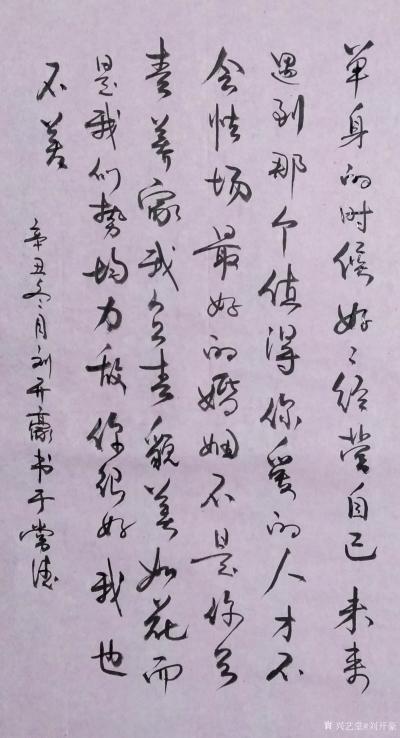 单身的时候好々经营自己未来
遇到那个值得你爱的人才不
会怯场最好的婚姻不是你负
责养家我负责貌美如花而
是我们势均力敌你很好我也
不差
辛丑冬月刘开豪书于常德
兴艺堂@刘开豪